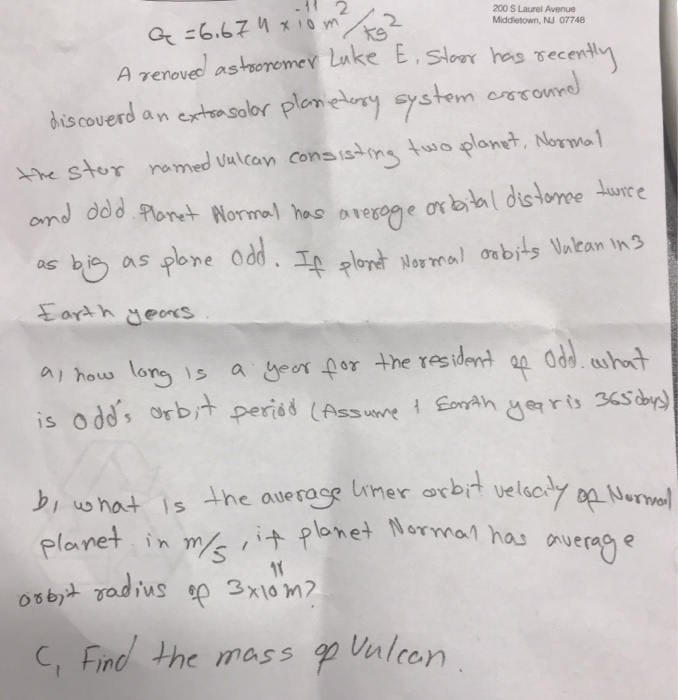 200 S Laurel Avenue
Middletown, NJ 07748
G = 6.674 x 10^-11 m^2/kg^2
A renoved astronomer Luke E. Starr has recently
discoverd an extrasolar planetary system arround
the star named Vulcan consisting two planet, Normal
and Odd. Planet Normal has average orbital distance twice
as big as plane Odd. If planet Normal orbits Vulcan in 3
Earth years.
a, how long is a year for the resident of Odd. what
is odd's orbit period (Assume 1 Earth year is 365 days)
b, what is the average liner orbit velocity of Normal
planet in m/s, if planet Normal has average
orbit radius of 3x10^11 m?
C, Find the mass of Vulcan.